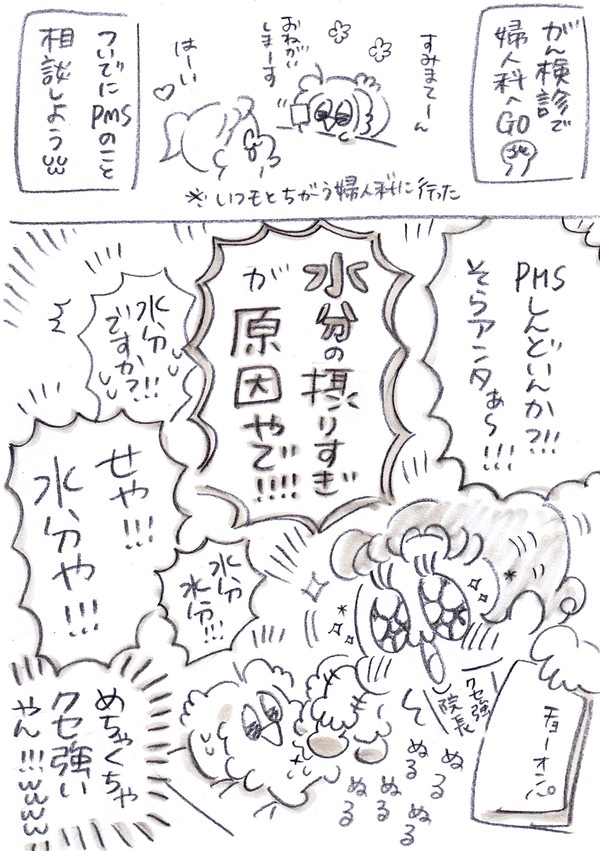 がん検診で
婦人科へGO
すみませーん
おねがい
しまーす
はーい
ついでに
PMSのこと
相談しよう ww
※いつもとちがう婦人科に行った
PMSしんどいんか?!!
そらアンタぁら!!!
水分の摂りすぎ
が
原因やで!!!!
水分
ですか?!!
せや!!!
水分や!!!
水分
水分!!!
クセ強
院長
チョーオンパ
ぬる
ぬる
ぬる
ぬる
ぬる
ぬる
めちゃくちゃ
クセ強い
やん!!!wwww